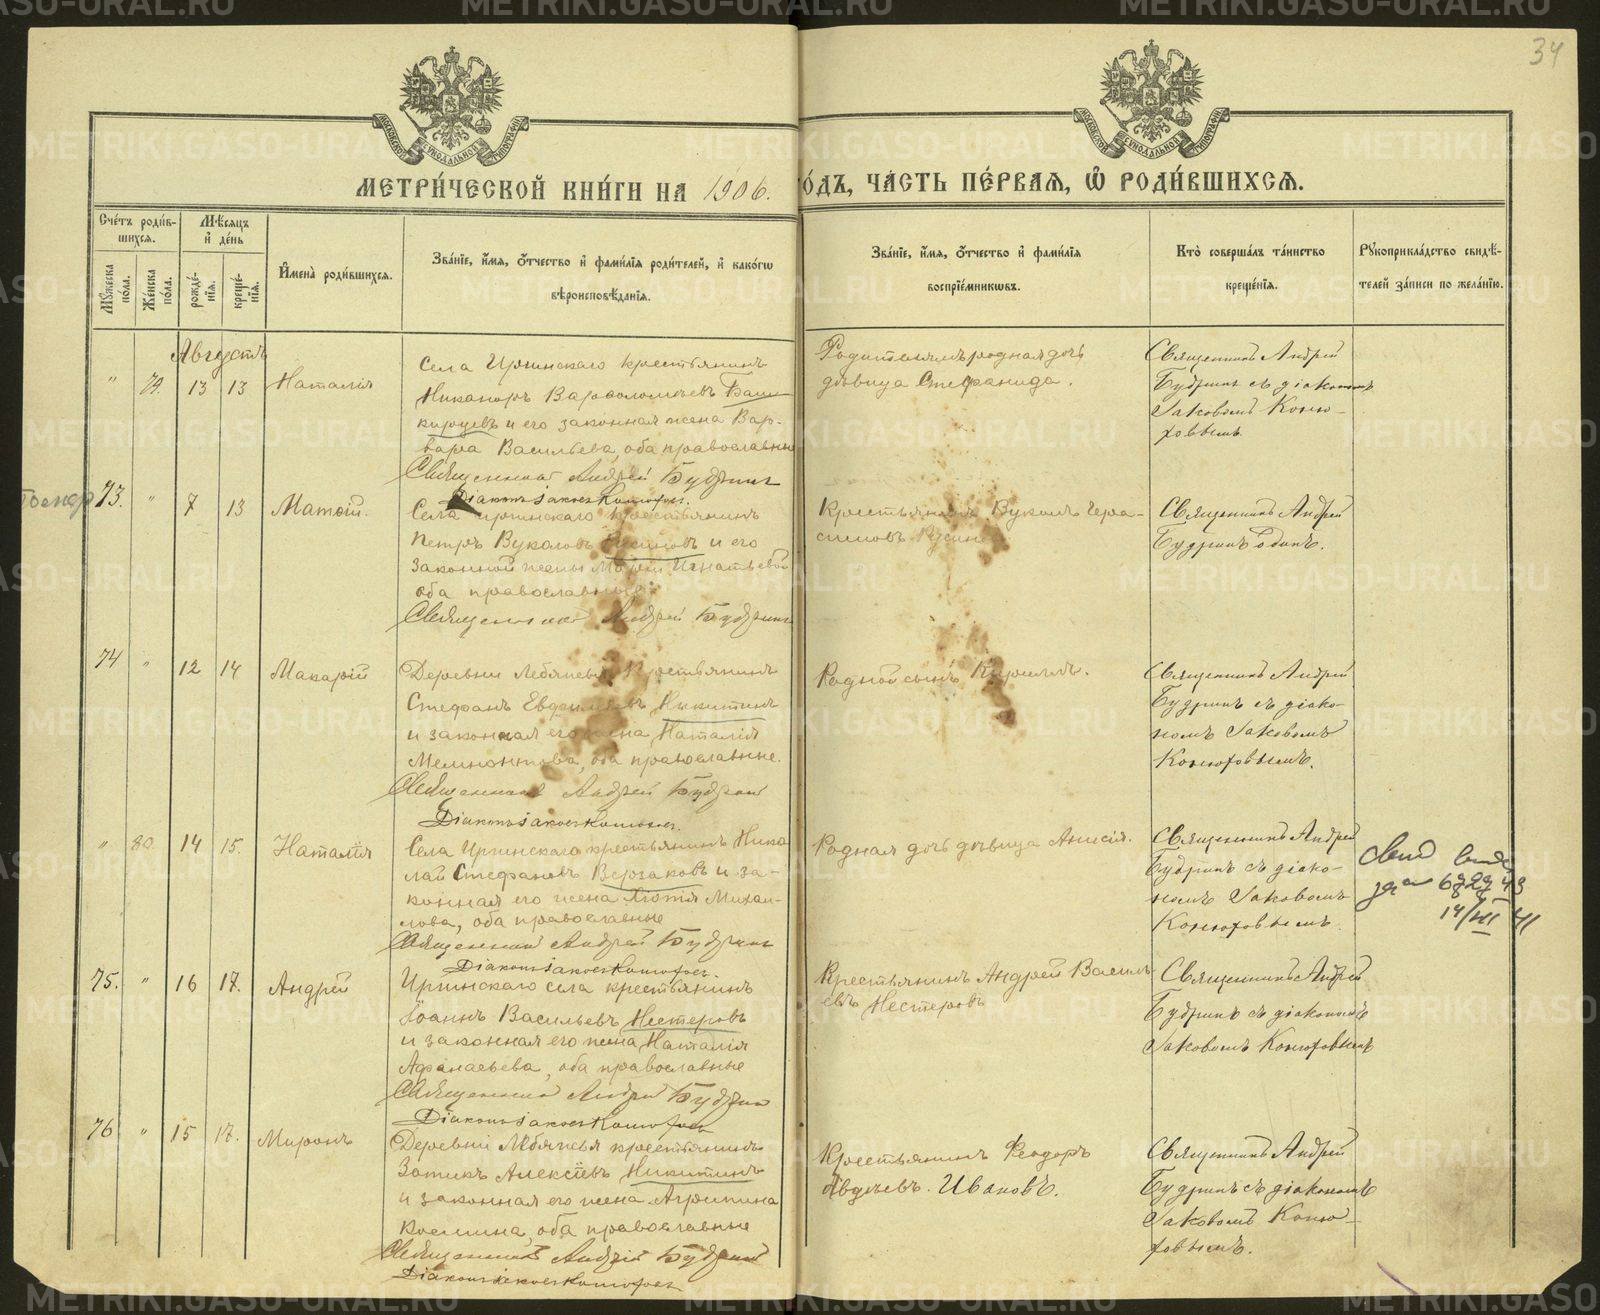 34
МЕТРИ́ЧЕСКОЙ КНИ́ГИ НА 1906. ГО́ДЪ, ЧА́СТЬ ПЕ́РВАЯ, Ѿ РОДИ́ВШИХСѦ.
Сче́тъ роди́в-
шихся.
Мꙋ́жеска по́ла.
Же́нска по́ла.
Мѣ́сяцъ и́ де́нь
рожде́-
нїя.
креще́-
нїя.
И҆мена̀ роди́вшихся.
Зва́нїе, и҆́мя, ѻ҆́тчество и҆ фами́лїя роди́телей, и҆ како́гѡ
вѣроисповѣ́данїя.
Зва́нїе, и҆́мя, ѻ҆́тчество и҆ фами́лїя
воспрїе́мникѡвъ.
Кто̀ соверша́лъ та́инство
креще́нїя.
Рꙋкоприкла́дство свидѣ́-
телей за́писи по жела́нїю.
Августъ
" 79. 13 13 Наталія
Села Иргинскаго крестьянинъ
Никаноръ Варѳоломеевъ Баш-
кирцевъ и его законная жена Вар-
вара Васильева, оба православные
Священникъ Андрей Будринъ
Діаконъ Іаковъ Конюховъ.
родная дочь
дѣвица Стефанида.
Священникъ Андрей
Будринъ съ діакономъ
Іаковомъ Коню-
ховымъ.
73. " 7 13 Матѳій.
Села Иргинскаго крестьянинъ
Петръ Вуколовъ Русиновъ и его
законной жены Маріи Игнатьевой
оба православные
Священникъ Андрей Будринъ
Крестьянинъ Вуколъ Гера-
симовъ
Священникъ Андрей
Будринъ одинъ.
74 " 12 14 Макарій
Деревни Лебяжьей крестьянинъ
Стефанъ Никитинъ
и законная его жена Наталія
оба православные.
Священникъ Андрей Будринъ
Діаконъ Іаковъ Конюховъ.
Родной сынъ Кириллъ.
Священникъ Андрей
Будринъ съ діако-
номъ Іаковомъ
Конюховымъ.
" 80. 14 15. Наталія
Села Иргинскаго крестьянинъ Нико
лай Стефановъ Верзаковъ и за-
конная его жена Михаи-
лова, оба православные
Священникъ Андрей Будринъ
Діаконъ Іаковъ Конюховъ.
Родная дочь дѣвица Анисія.
Священникъ Андрей
Будринъ съ діако-
номъ Іаковомъ
Конюховымъ.
75. " 16 17. Андрей
Иргинскаго села крестьянинъ
Іоаннъ Васильевъ Нестеровъ
и законная его жена Наталія
Афанасьева, оба православные
Священникъ Андрей Будринъ
Діаконъ Іаковъ Конюховъ
Крестьянинъ Андрей Василь
евъ Нестеровъ
Священникъ Андрей
Будринъ съ діакономъ
Іаковомъ Конюховымъ
76 " 15 17. Миронъ
Деревни Лебяжья крестьянинъ
Зотикъ Алексіевъ Никитинъ
и законная его жена Агрипина
Космина, оба православные
Священникъ Андрей Будринъ
Діаконъ Іаковъ Конюховъ
Крестьянинъ Ѳеодоръ
Авдѣевъ Ивановъ.
Священникъ Андрей
Будринъ съ діакономъ
Іаковомъ Коню-
ховымъ.
METRIKI.GASO-URAL.RU